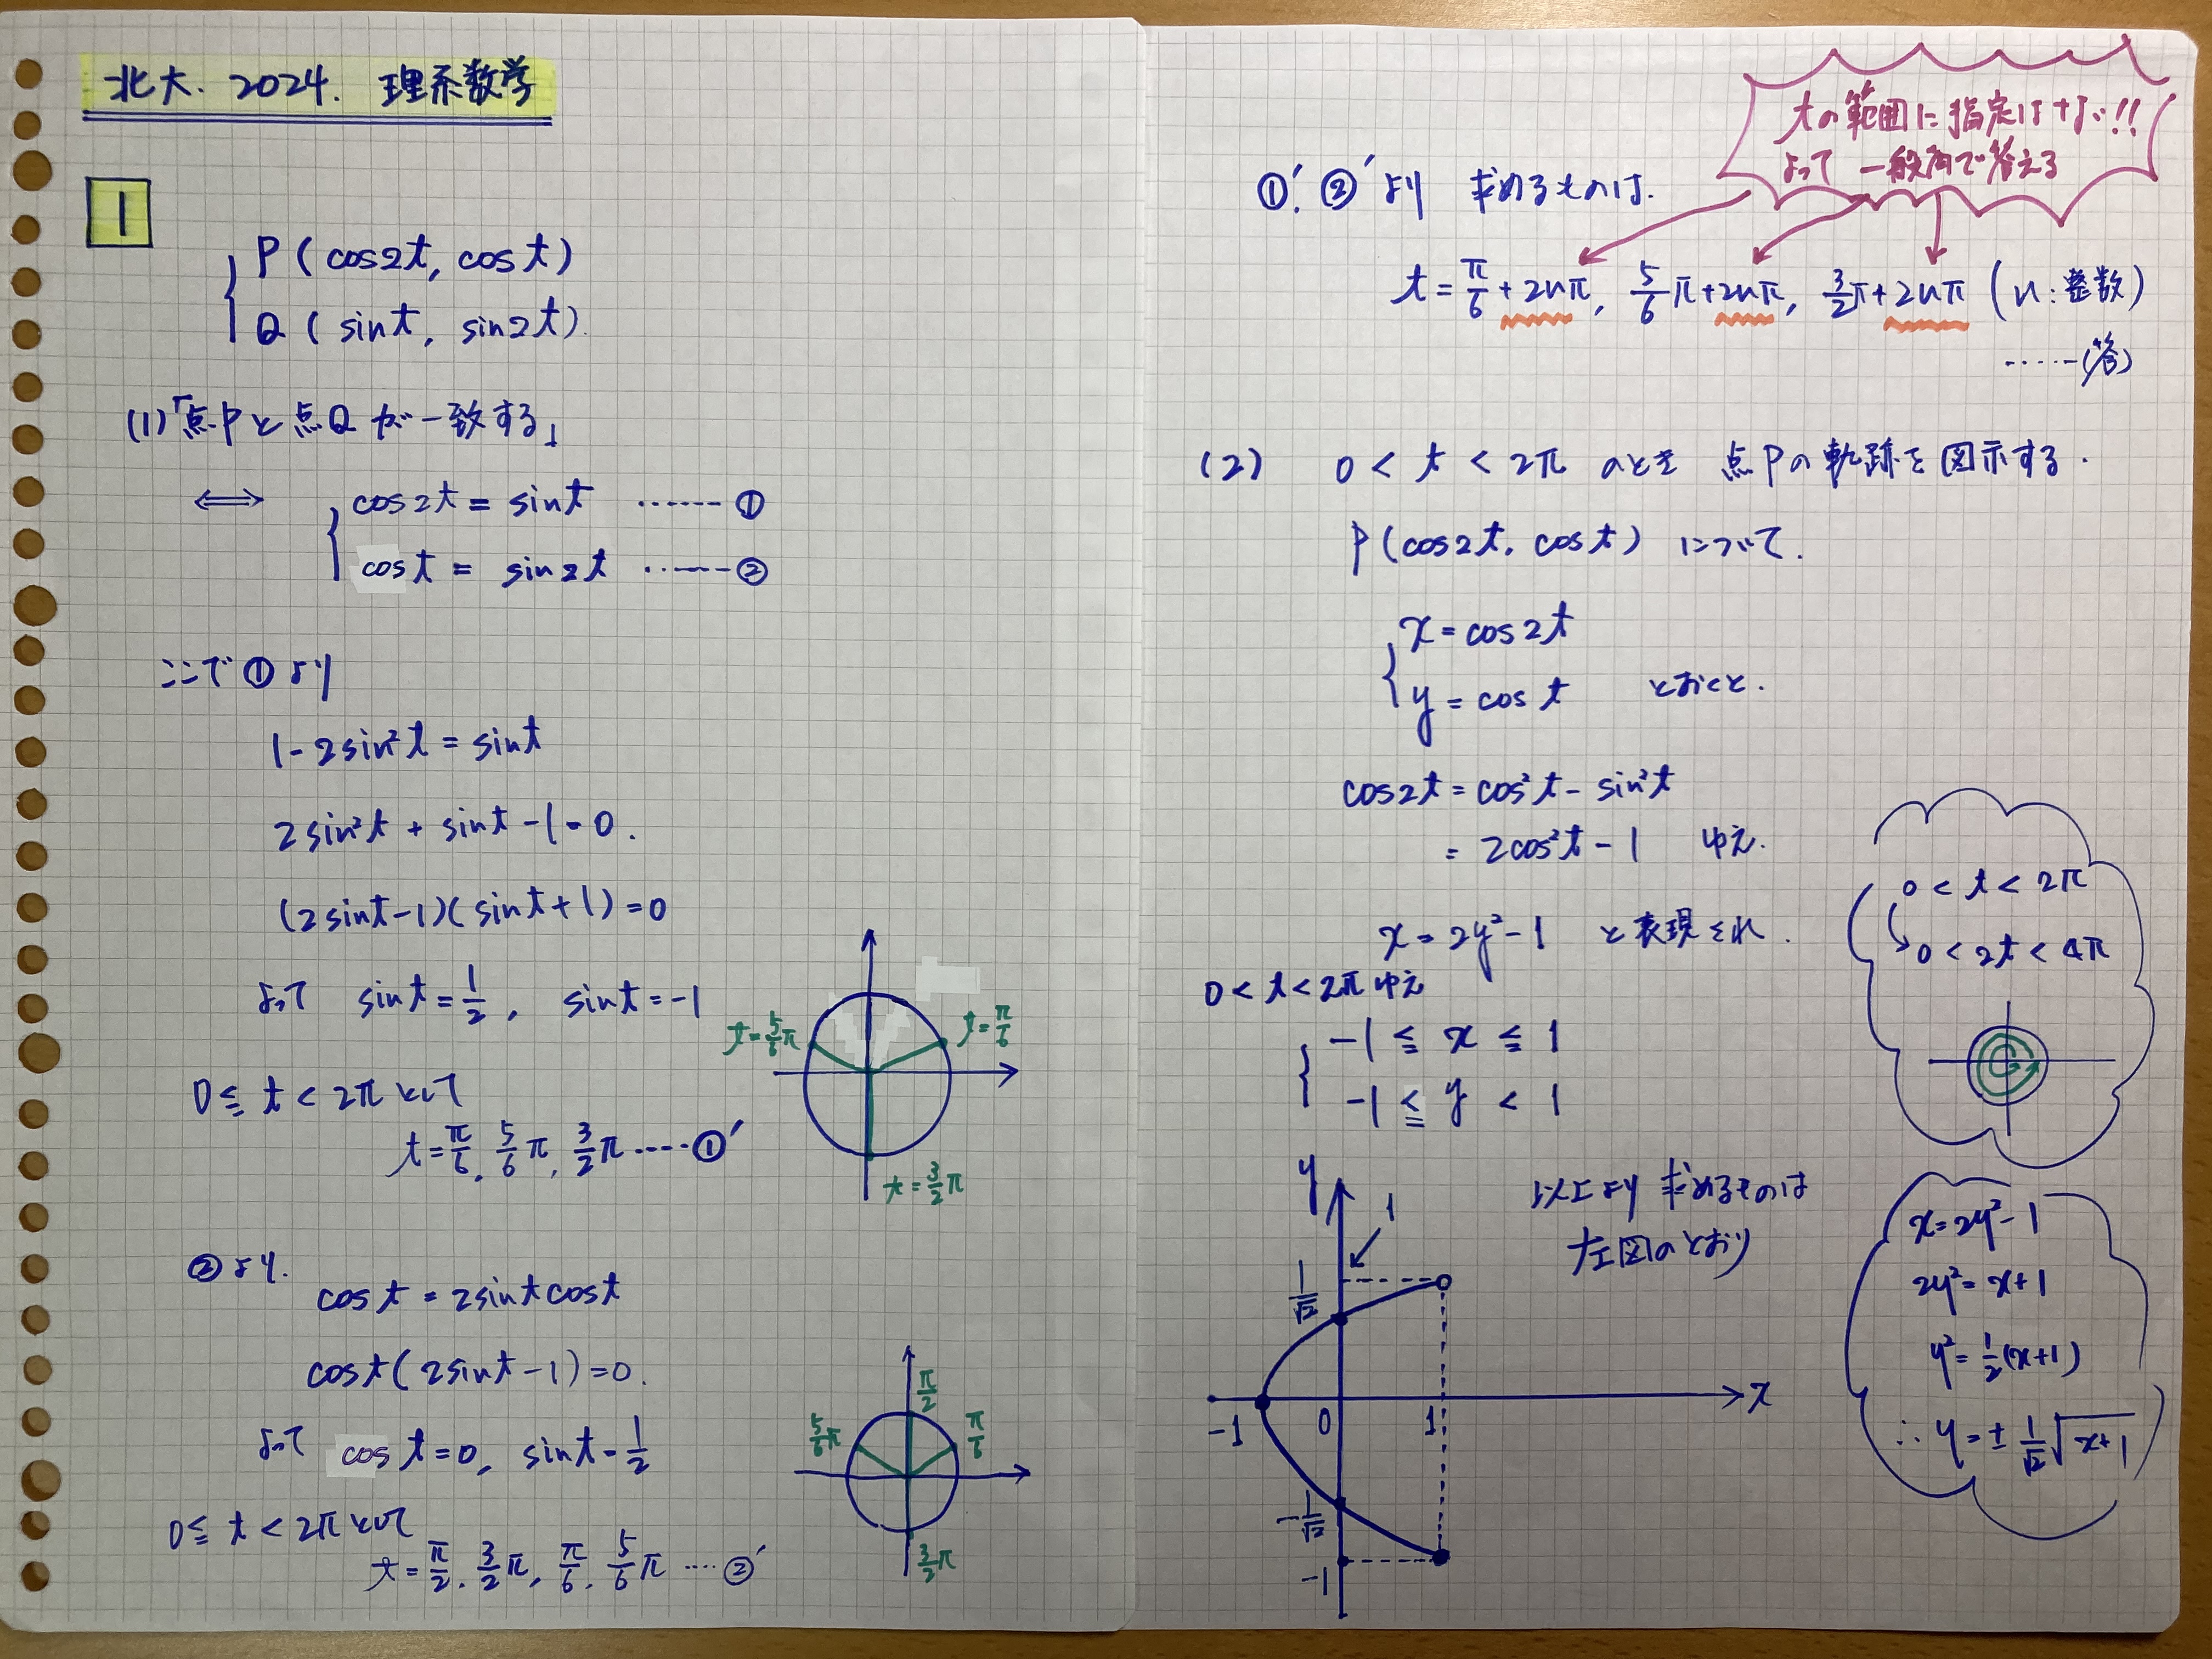 北大. 2024. 理系数学
1
P (cos2t, cost)
Q (sint, sin2t).
(1)「点Pと点Qが一致する」
⇔ cos2t = sint ……①
cost = sin2t ……②
ここで①より
1-2sin²t = sint
2sin²t + sint -1=0.
(2sint-1)(sint+1)=0
よって sint=1/2, sint=-1
t=5/6π
t=π/6
t=3/2π
0≦t<2πとして
t=π/6, 5/6π, 3/2π ……①'
②より.
cost = 2sint cost
cost(2sint-1)=0.
よって cost=0, sint=1/2
π/2
5/6π
π/6
3/2π
0≦t<2πとして
t=π/2, 3/2π, π/6, 5/6π ……②'
tの範囲に指定はない!!
よって 一般角で答える
①', ②'より 求めるものは.
t=π/6+2nπ, 5/6π+2nπ, 3/2π+2nπ (n:整数)
……(答)
(2) 0<t<2π のとき 点Pの軌跡を図示する.
P(cos2t, cost) について.
x=cos2t
y=cost とおくと.
cos2t=cos²t-sin²t
=2cos²t-1 ゆえ.
x=2y²-1 と表現され.
0<t<2πゆえ
-1≦x≦1
-1≦y<1
0<t<2π
0<2t<4π
以上より 求めるものは
左図のとおり
y
1
1/√2
-1
0
1
x
-1/√2
-1
x=2y²-1
2y²=x+1
y²=1/2(x+1)
∴ y=±1/√2√(x+1)